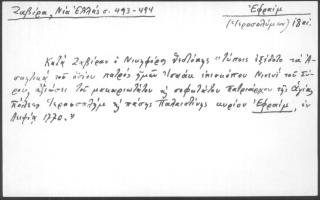 Ζαβίρα, Νέα Ἑλλάς σ. 493-494
Ἐφραὶμ
(Ἱεροσολύμων) 18 αἰ.
Κατὰ Ζαβίραν ὁ Νικηφόρος Θεοτόκης "Τύποις ἐξέδοτο τὰ Ἀ-
σκητικὰ τοῦ ὁσίου πατρὸς ἡμῶν Ἰσαὰκ ἐπισκόπου Νινευΐ τοῦ Σύ-
ρου, ἀξιώσει τοῦ μακαριωτάτου καὶ σοφωτάτου πατριάρχου τῆς ἁγίας
πόλεως Ἱερουσαλὴμ καὶ πάσης Παλαιστίνης κυρίου Ἐφραίμ, ἐν
Λειψίᾳ 1770."